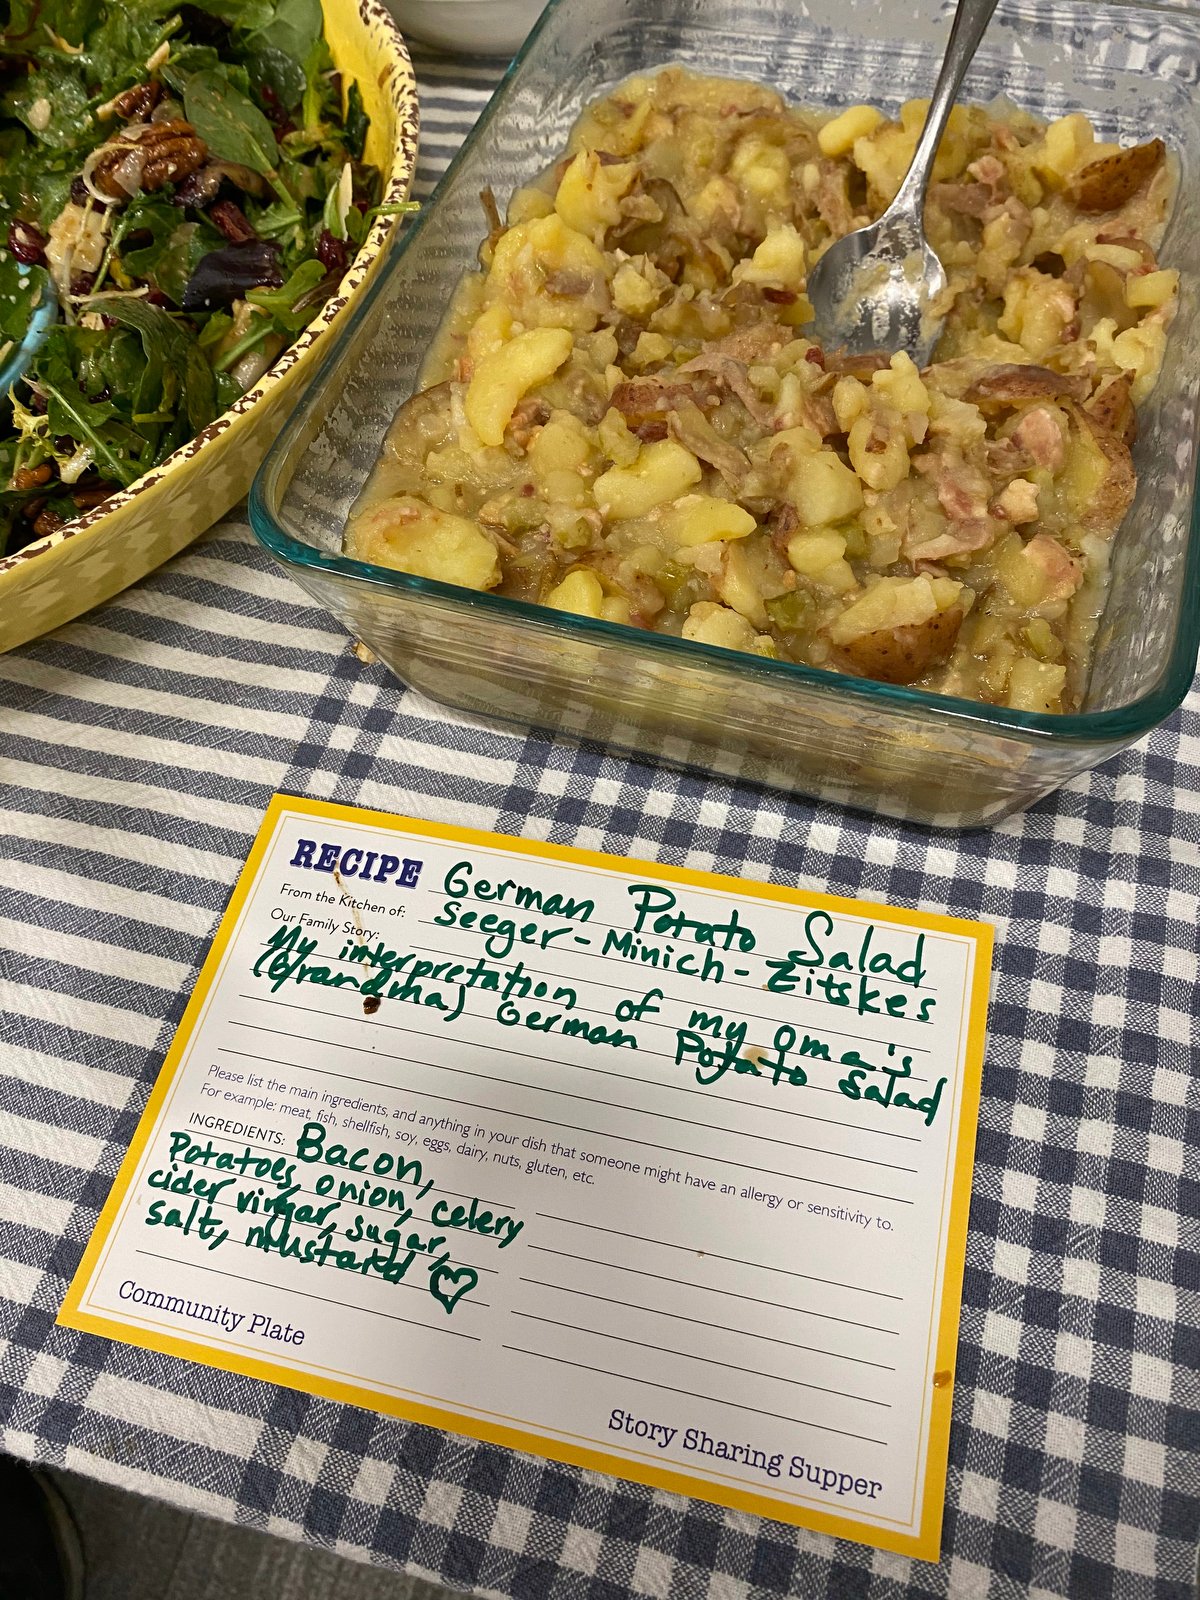 RECIPE German Potato Salad
From the Kitchen of: Seeger-Minich-Eitskes
Our Family Story:
My interpretation of my Oma's
(Grandma) German Potato Salad
Please list the main ingredients, and anything in your dish that someone might have an allergy or sensitivity to.
For example: meat, fish, shellfish, soy, eggs, dairy, nuts, gluten, etc.
INGREDIENTS: Bacon,
Potatoes, onion, celery
cider vingar, sugar,
salt, mustard ♡
Community Plate
Story Sharing Supper